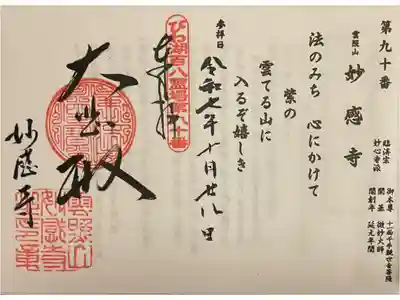 第九十番
雲照山 妙感寺
臨済宗
妙心寺派
御本尊 十一面千手観世音菩薩
開基 微妙大師
開創年 延元年間
法のみち 心にかけて
紫の
雲てる山に
入るぞ嬉しき
参拝日
令和七年十月廿八日
びわ湖百八霊場第九十番
奉拝
大悲殿
妙感寺